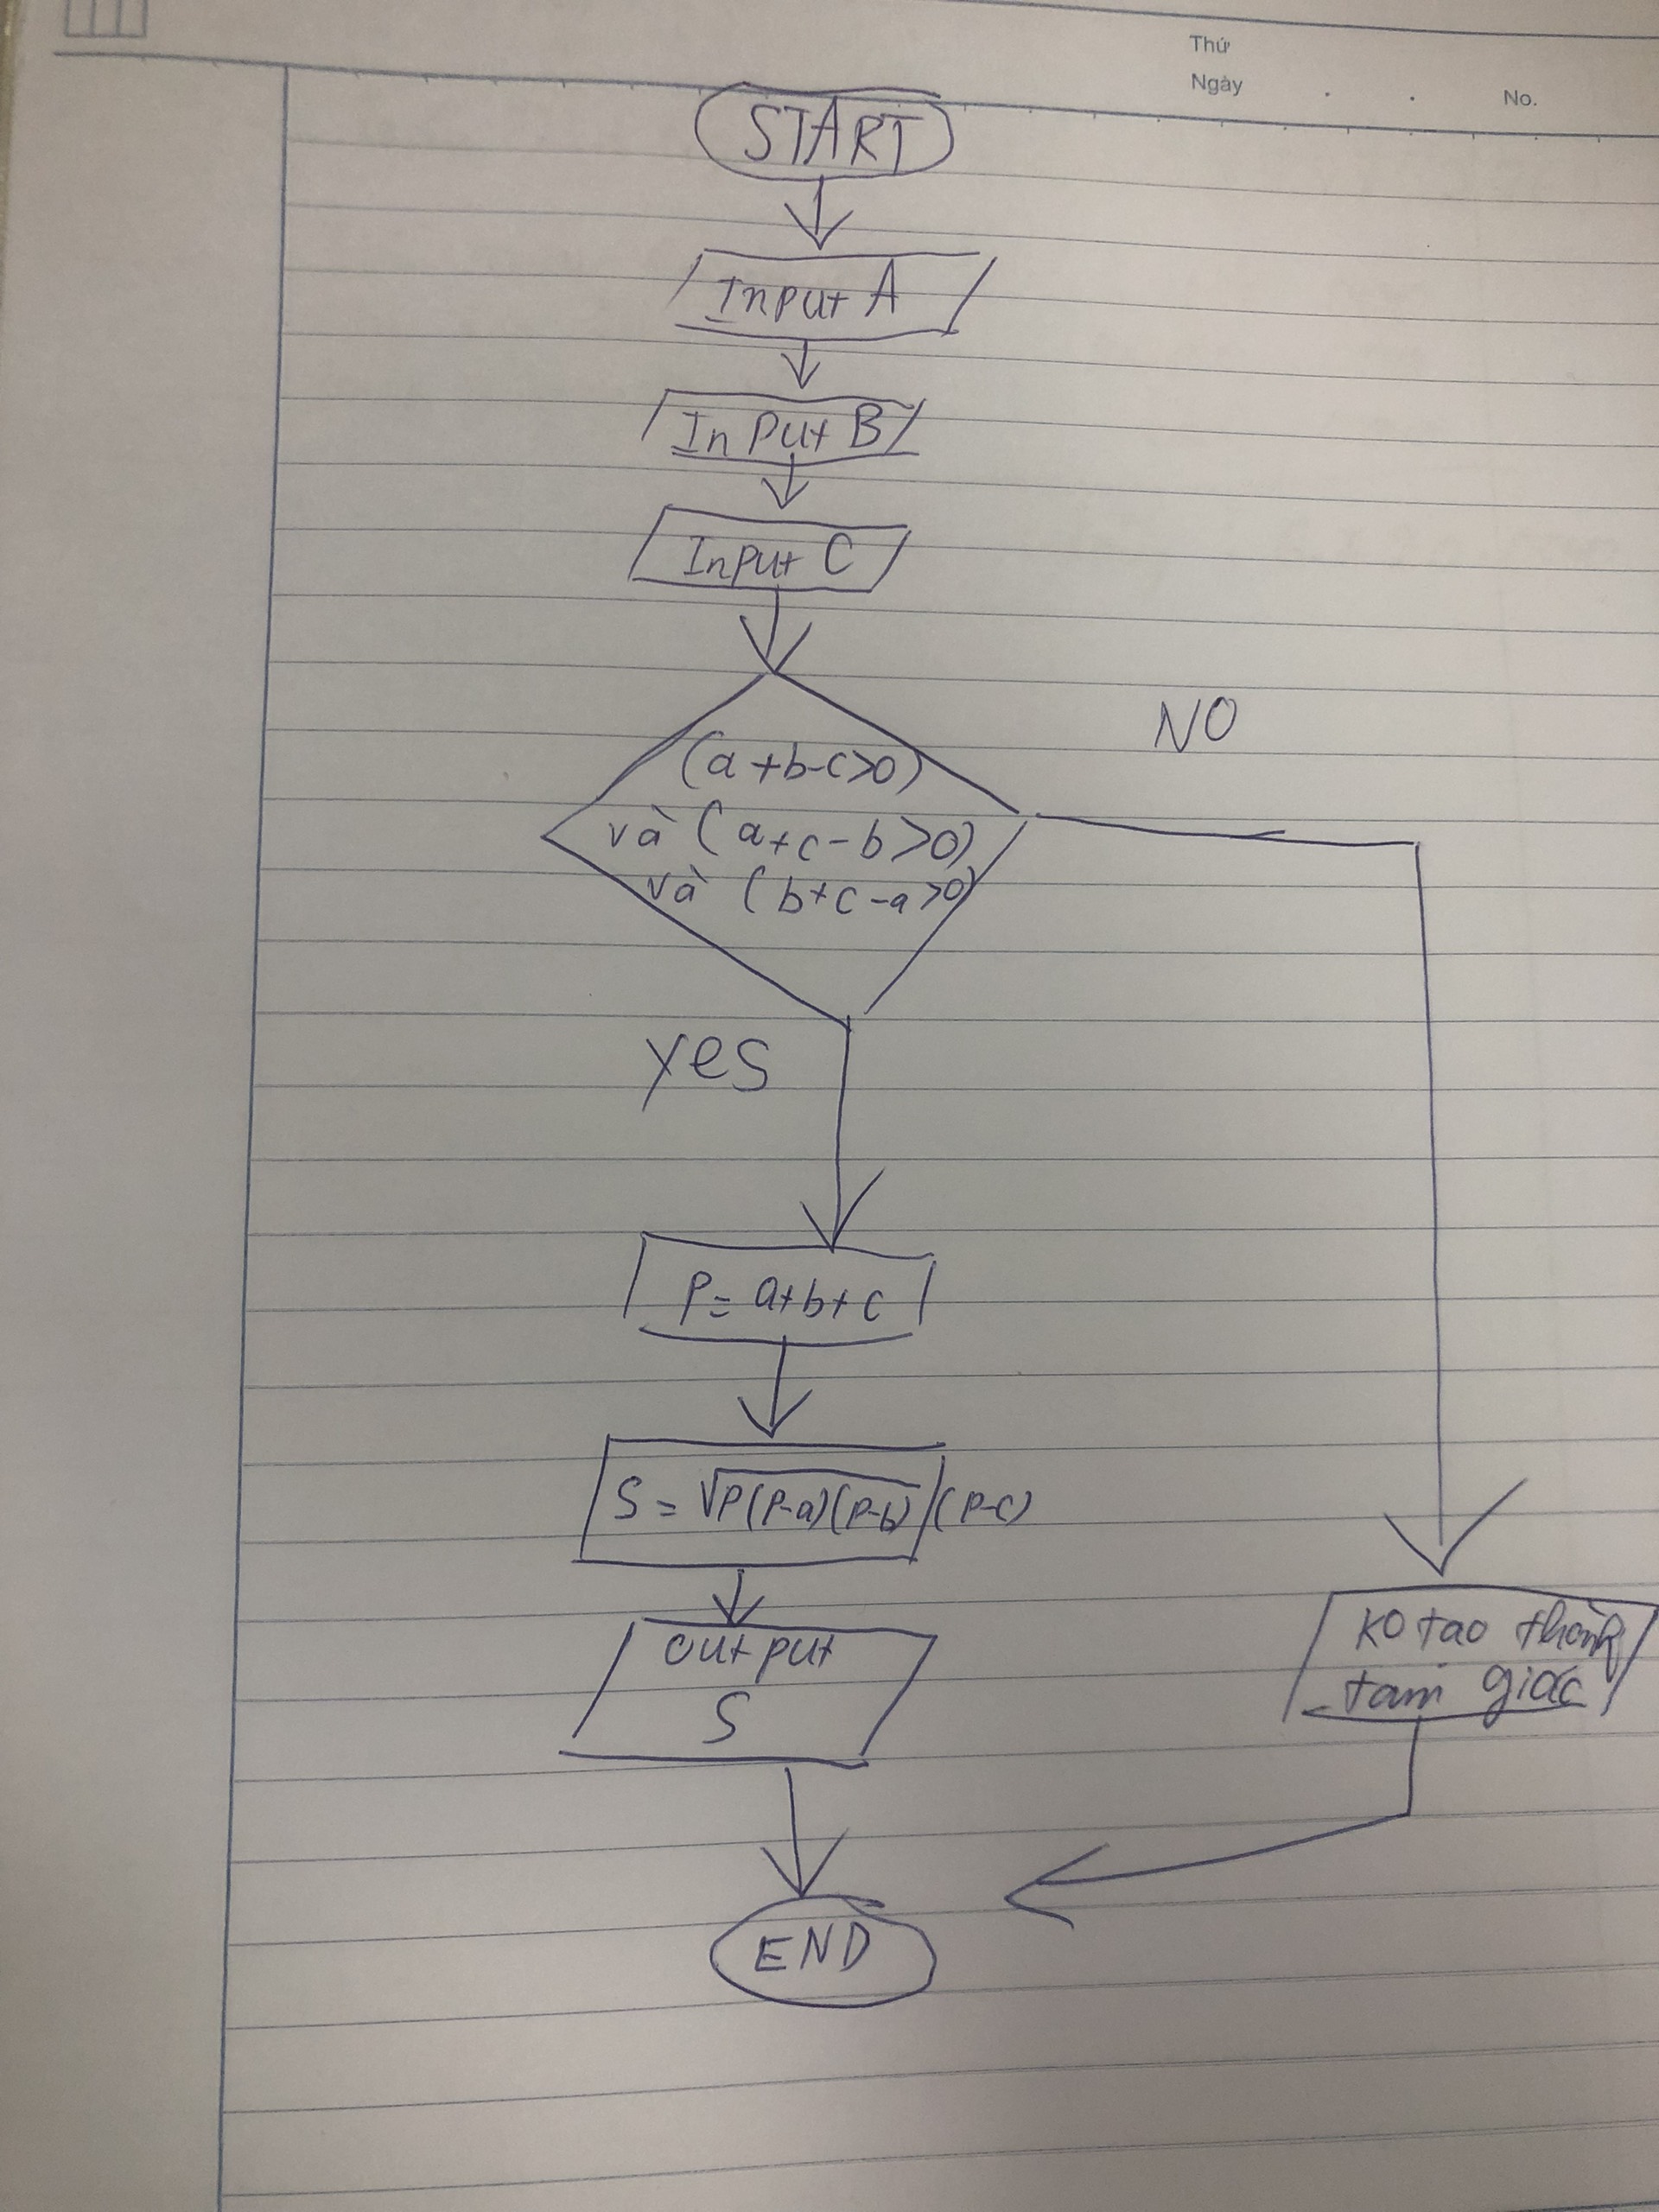 Thứ
Ngày . . No.
START
Input A
Input B
Input C
(a+b-c>0)
và (a+c-b>0)
và (b+c-a>0)
NO
yes
P= a+b+c
S = √P(P-a)(P-b)(P-c)
output
S
KO tạo thành
tam giác
END